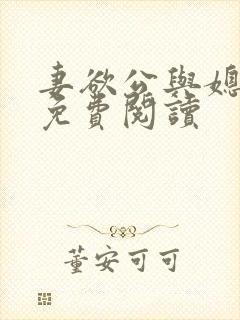 妻欲公與媳
免費閱讀
董安可可